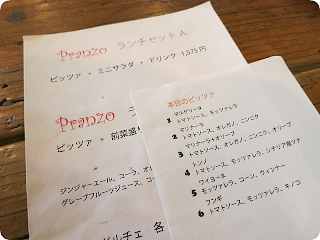 Pranzo ランチセット A
ピッツァ + ミニサラダ + ドリンク 1,575円
Pranzo
ピッツァ + 前菜盛り
ジンジャーエール、コーラ、オ
グレープフルーツジュース、コー
ドルチェ 各
本日のピッツァ
1 マルゲリータ
トマトソース、モッツァレラ
2 マリナーラ
トマトソース、オレガノ、ニンニク
3 マリナーラ+オリーブ
トマトソース、オレガノ、ニンニク、オリーブ
4 トンノ
トマトソース、モッツァレラ、シチリア産ツナ
5 ワイヨーネ
モッツァレラ、コーン、ウィンナー
6 フンギ
トマトソース、モッツァレラ、キノコ